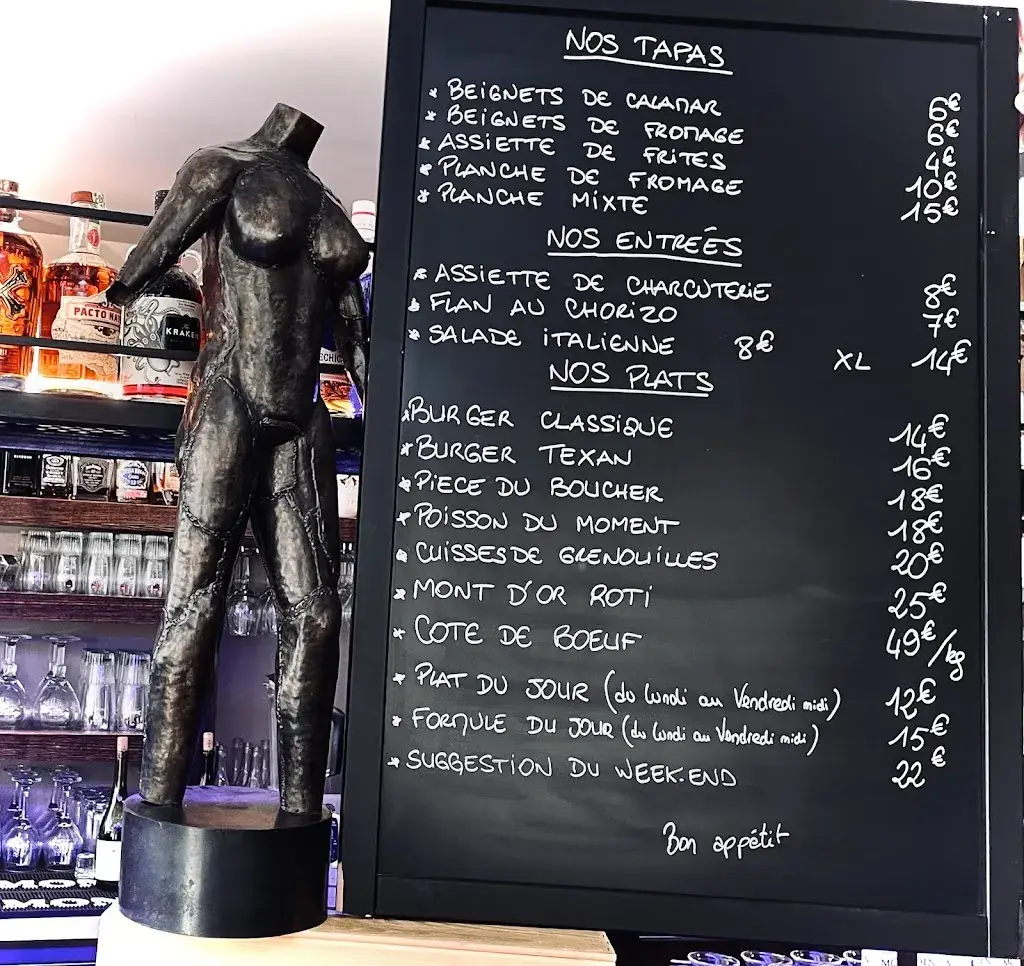 NOS TAPAS
* BEIGNETS DE CALAMAR 6€
* BEIGNETS DE FROMAGE 6€
* ASSIETTE DE FRITES 4€
* PLANCHE DE FROMAGE 10€
* PLANCHE MIXTE 15€
NOS ENTREÉS
* ASSIETTE DE CHARCUTERIE 8€
* FLAN AU CHORIZO 7€
* SALADE ITALIENNE 8€ XL 14€
NOS PLATS
* BURGER CLASSIQUE 14€
* BURGER TEXAN 16€
* PIECE DU BOUCHER 18€
* POISSON DU MOMENT 18€
* CUISSES DE GRENOUILLES 20€
* MONT D'OR ROTI 25€
* COTE DE BOEUF 49€/kg
* PLAT DU JOUR (du Lundi au Vendredi midi) 12€
* FORMULE DU JOUR (du Lundi au Vendredi midi) 15€
* SUGGESTION DU WEEK-END 22€
Bon appétit
PACTO
KRAKEN